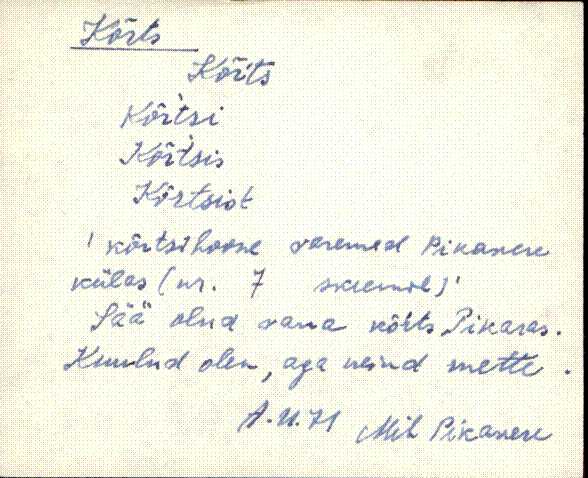 Kõrts
Kõrts
Kõrtsi
Kõrtsis
Kõrtsist
' kõrtsihoone varemed Pikavere
külas (nr. 7 skeemil)'
Sää olnd vana kõrts Pikaras.
Kuulud olen, aga neind mette.
A.U.71 Mih Pikavere